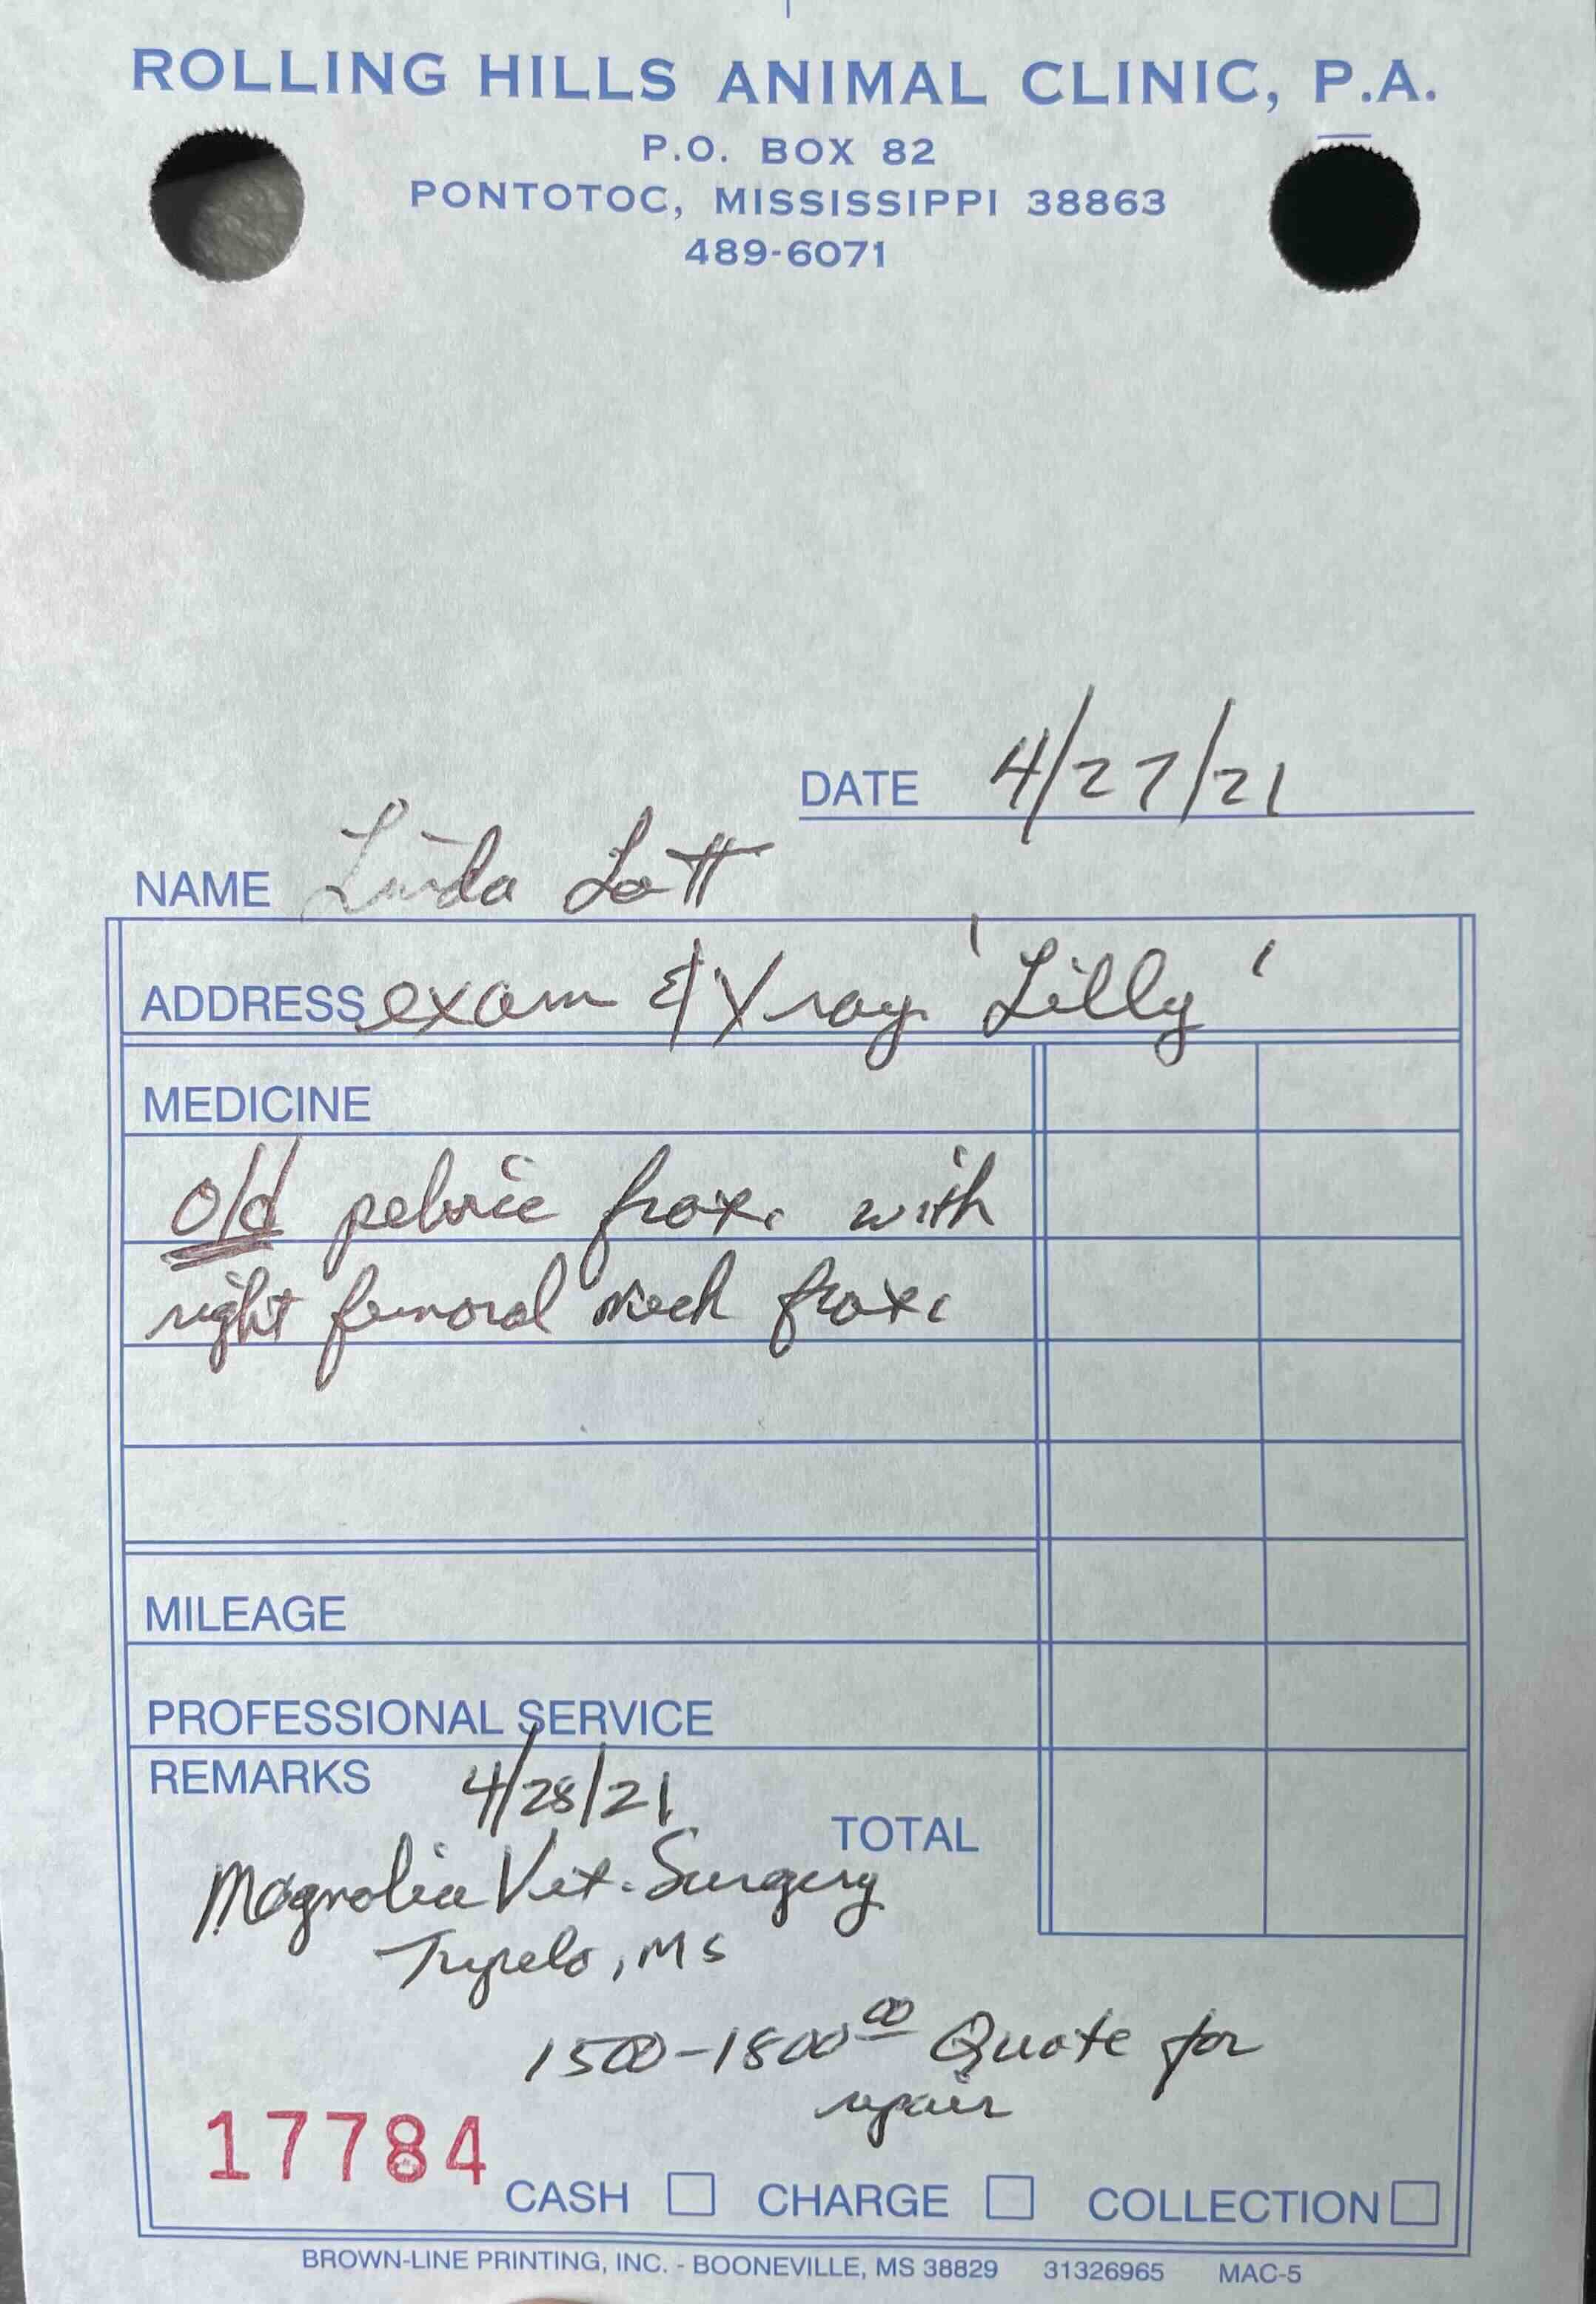 ROLLING HILLS ANIMAL CLINIC, P.A.
P.O. BOX 82
PONTOTOC, MISSISSIPPI 38863
489-6071
DATE 4/27/21
NAME Linda Lott
ADDRESS exam & Xray 'Lilly'
MEDICINE
old pelvic frax. with
right femoral neck frax.
MILEAGE
PROFESSIONAL SERVICE
REMARKS 4/28/21
TOTAL
Magnolia Vet. Surgery
Tupelo, MS
1500-1800⁰⁰ Quote for
repair
17784
CASH CHARGE COLLECTION
BROWN-LINE PRINTING, INC. - BOONEVILLE, MS 38829 31326965 MAC-5